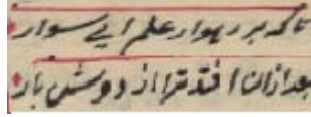 تا که بر رهوار علم آیی سوار
بعد ازان افتد ترا از دوش بار